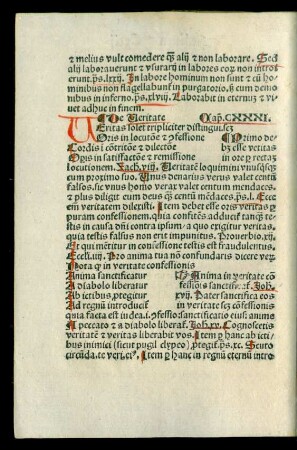 et melius vult comedere qȝ alij et non laborare. Sed
alij laborauerunt et vsurarij in labores eoꝝ non intro⸗
erunt. p̄s. lxxij. In labore hominum non sunt et cū ho⸗
minibus non flagellabunt̄ in purgatorio. sȝ cum demo
nibus in inferno. p̄s. xlviij. Laborabit in eternuȝ et vi
uet adhuc in finem.
De Veritate Cap̄. CXXXI.
Veritas solet tripliciter distingui. scȝ
Oris in locutōe et cōfessione Primo de⸗
Cordis ī cōtritōne et dilectōe bȝ esse veritas
Opis in satisfactōe et remissione in ore per recta₃
locutionem. Zach. viij. Veritatē loquimini vnusq̄sqȝ
cum proximo suo. Vnus denarius verus valet centū
falsos. sic vnus homo verax valet centum mendaces
et plus diligit eum deus q̄ȝ centū mēdaces. p̄s. l. Ecce
em̄ veritatem dilexisti. Item debet esse oris veritas per
puram confessionem. quia confitēs adducit tanqȝ te⸗
stis in causa dn̄i contra ipsum. a quo exigitur veritas.
quia testis falsus non erit impunitus. Prouerbio. xij.
Et qui mētitur in confessione testis est fraudulentus.
Eccl. iiij. Pro anima tua nō confundaris dicere veꝝ
Nota per in veritate confessionis
Anima sanctificatur Anima in veritate cō
A diabolo liberatur fessiōis sanctific̄. vt. Joh.
Ab ictibus protegitur xvij. Pater sanctifica eos
Ad regnū introducit̄ in veritate scȝ cōfessiōis
quia facta est iudea. i. cōfessio sanctificatio eius. anim̄
A peccato et a diabolo liberat̄. Joh. xv. Cognoscetis
veritatē et veritas liberabit vos. Item per hanc ab icti⸗
bus inimici (sicut pugil clypeo) ptegit̄. p̄s. xc. Scuto
circūda. te veri. ei⁹. Item per hanc in regnū eternū intro